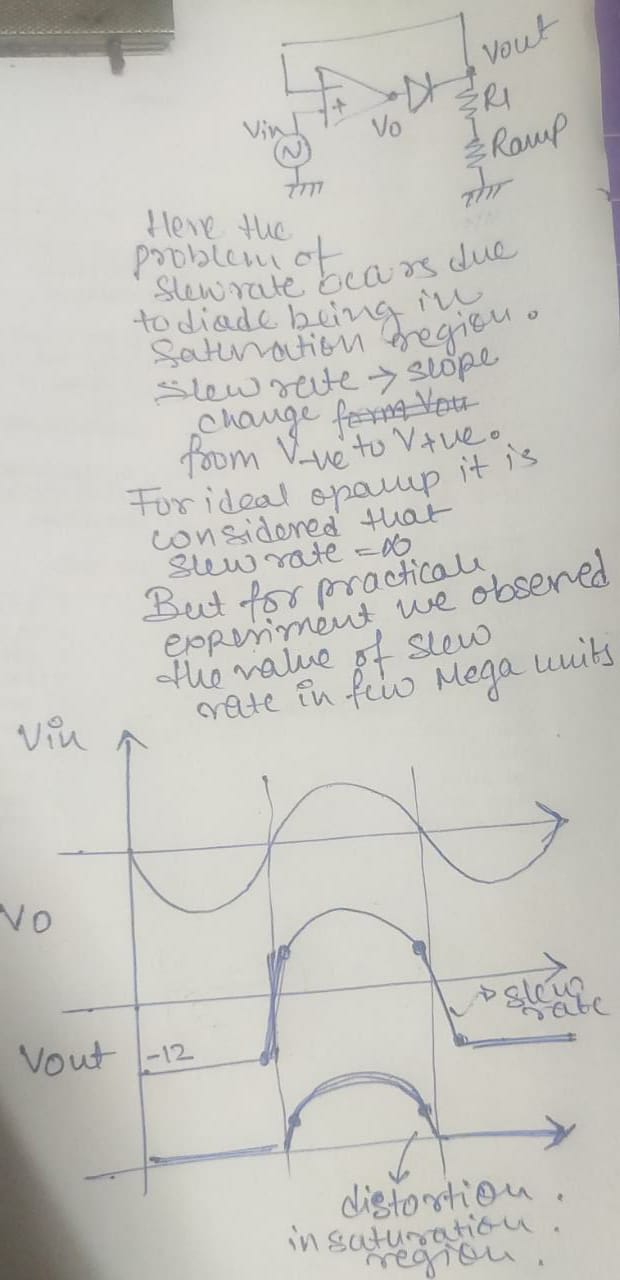 Vout
R1
Vin
+
Vo
Ramp
Here the
problem of
slew rate occurs due
to diode being in
saturation region.
Slew rate → slope
change form Vou
from V-ve to V+ve.
For ideal opamp it is
considered that
slew rate = ∞
But for practical
experiment we observed
the value of slew
rate in few Mega units
Vin
Vo
→ slew
rate
Vout
-12
distortion.
in saturation.
region.